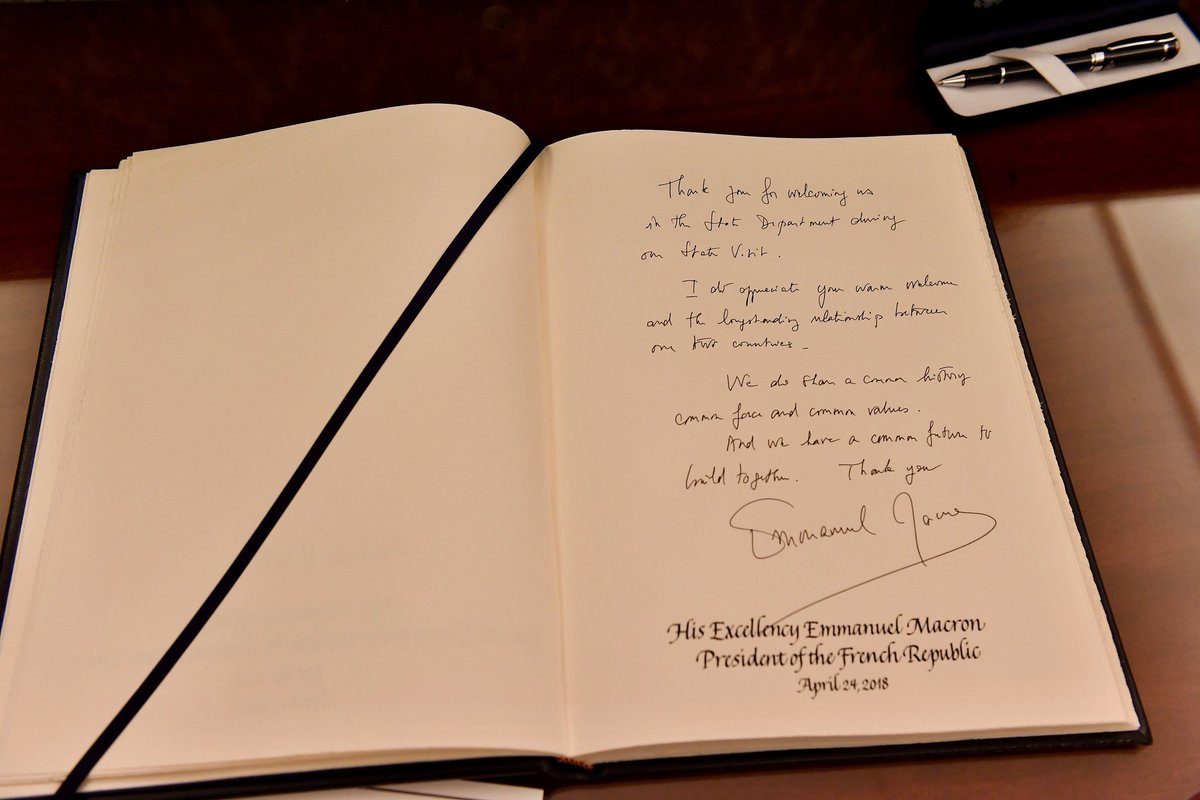 Thank you for welcoming us
in the State Department during
our State Visit.
I do appreciate your warm welcome
and the longstanding relationship between
our two countries.
We do share a common history
common force and common values.
And we have a common future to
build together. Thank you
Emmanuel Macron
His Excellency Emmanuel Macron
President of the French Republic
April 24, 2018